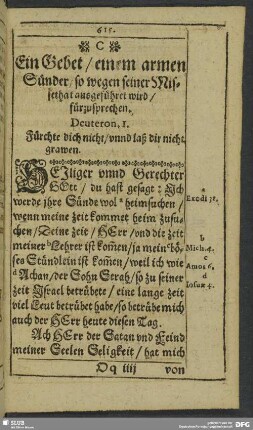 615.
C
Ein Gebet / einem armen
Sünder / so wegen seiner Mis-
sethat ausgeführet wird /
fürzusprechen.
Deuteron. 1.
Fürchte dich nicht / vnnd laß dir nicht
grawen.
HEJliger vnnd Gerechter
GOtt / du hast gesagt: Jch
werde jhre Sünde wol a heimsuchen /
wenn meine Zeit kommet heim zusu-
chen / Deine Zeit / HErr / vnd die Zeit
meiner b Lehrer ist kom̃en / ja mein c bö-
ses Stündlein ist kom̃en / weil ich wie
d Achan / der Sohn Serah / so zu seiner
Zeit Israel betrübete / eine lange Zeit
viel Leut betrübet habe / so betrübe mich
auch der HErr heute diesen Tag.
Ach HErr der Satan vnd Feind
meiner Seelen Seligkeit / hat mich
Qq iiij von
a
Exodi 32.
b
Mich. 4.
c
Amos 6.
d
Iosuæ 4.
SLUB
DFG